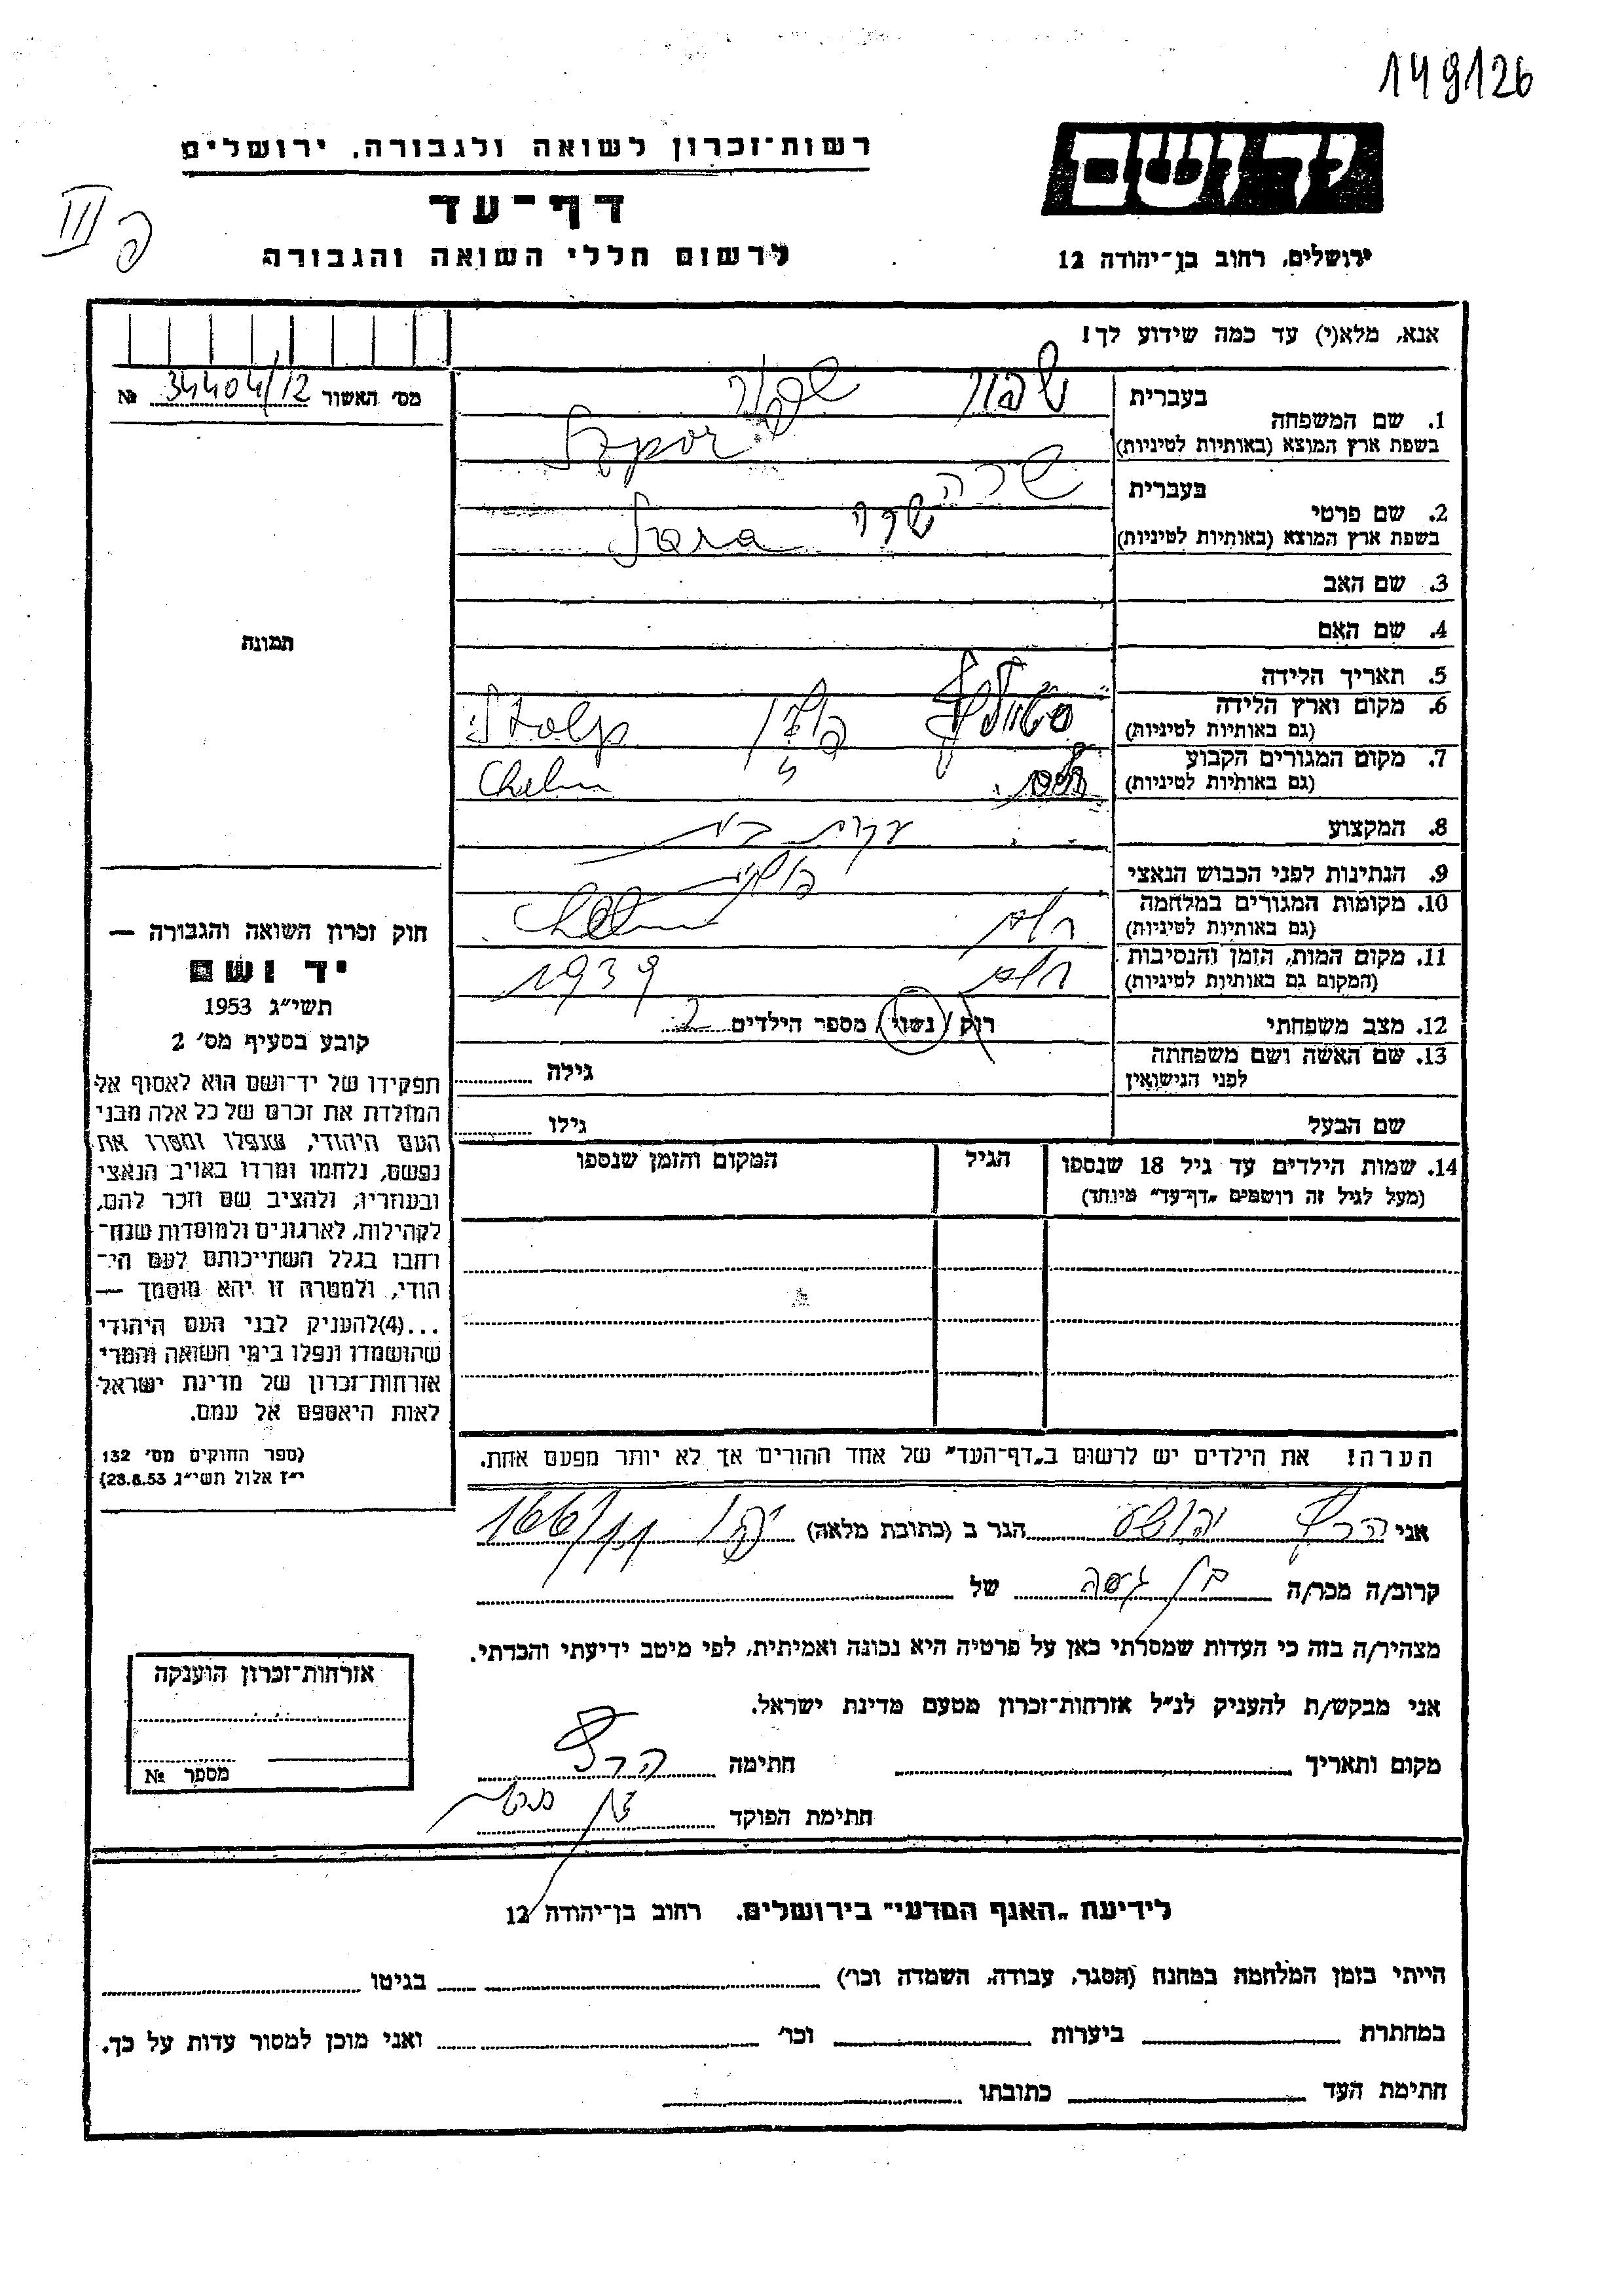 149126
רשות־זכרון לשואה ולגבורה, ירושלים
יד ושם
דף־עד
III פ
לרשום חללי השואה והגבורה
ירושלים, רחוב בן־יהודה 12
אנא, מלא(י) עד כמה שידוע לך!
מס׳ האשור 34404/12 №
בעברית
1. שם המשפחה
בשפת ארץ המוצא (באותיות לטיניות)
בעברית שרה
2. שם פרטי שרה
בשפת ארץ המוצא (באותיות לטיניות) Sara
3. שם האב
4. שם האם
תמונה
5. תאריך הלידה
6. מקום וארץ הלידה
(גם באותיות לטיניות)
7. מקום המגורים הקבוע Chelm
(גם באותיות לטיניות)
8. המקצוע עקרת בית
9. הנתינות לפני הכבוש הנאצי
10. מקומות המגורים במלחמה חלם Chelm
(גם באותיות לטיניות)
11. מקום המות, הזמן והנסיבות חלם 1939
(המקום גם באותיות לטיניות)
12. מצב משפחתי רוק / נשוי / מספר הילדים 2
13. שם האשה ושם משפחתה
לפני הנישואין גילה
שם הבעל גילו
14. שמות הילדים עד גיל 18 שנספו
(מעל לגיל זה רושמים „דף־עד״ מיוחד)
הגיל
המקום והזמן שנספו
חוק זכרון השואה והגבורה —
יד ושם
תשי״ג 1953
קובע בסעיף מס׳ 2
תפקידו של יד־ושם הוא לאסוף אל
המולדת את זכרם של כל אלה מבני
העם היהודי, שנפלו ומסרו את
נפשם, נלחמו ומרדו באויב הנאצי
ובעוזריו, ולהציב שם וזכר להם,
לקהילות, לארגונים ולמוסדות שנח־
רחבו בגלל השתייכותם לעם הי־
הודי, ולמטרה זו יהא מוסמך —
...(4)להעניק לבני העם היהודי
שהושמדו ונפלו בימי השואה והמרי
אזרחות־זכרון של מדינת ישראל
לאות היאספם אל עמם.
(ספר החוקים מס׳ 132
י״ז אלול תשי״ג 28.8.53)
הערה! את הילדים יש לרשום ב„דף־העד״ של אחד ההורים אך לא יותר מפעם אחת.
אני יהושע הגר ב (כתובת מלאה) 166/11
קרוב/ה מכר/ה של
מצהיר/ה בזה כי העדות שמסרתי כאן על פרטיה היא נכונה ואמיתית, לפי מיטב ידיעתי והכרתי.
אני מבקש/ת להעניק לנ״ל אזרחות־זכרון מטעם מדינת ישראל.
מקום ותאריך חתימה
חתימת הפוקד
אזרחות־זכרון הוענקה
מספר №
לידיעת „האגף המדעי״ בירושלים, רחוב בן־יהודה 12
הייתי בזמן המלחמה במחנה (הסגר, עבודה, השמדה וכו׳) בגיטו
במחתרת ביערות וכו׳ ואני מוכן למסור עדות על כך.
חתימת העד כתובתו